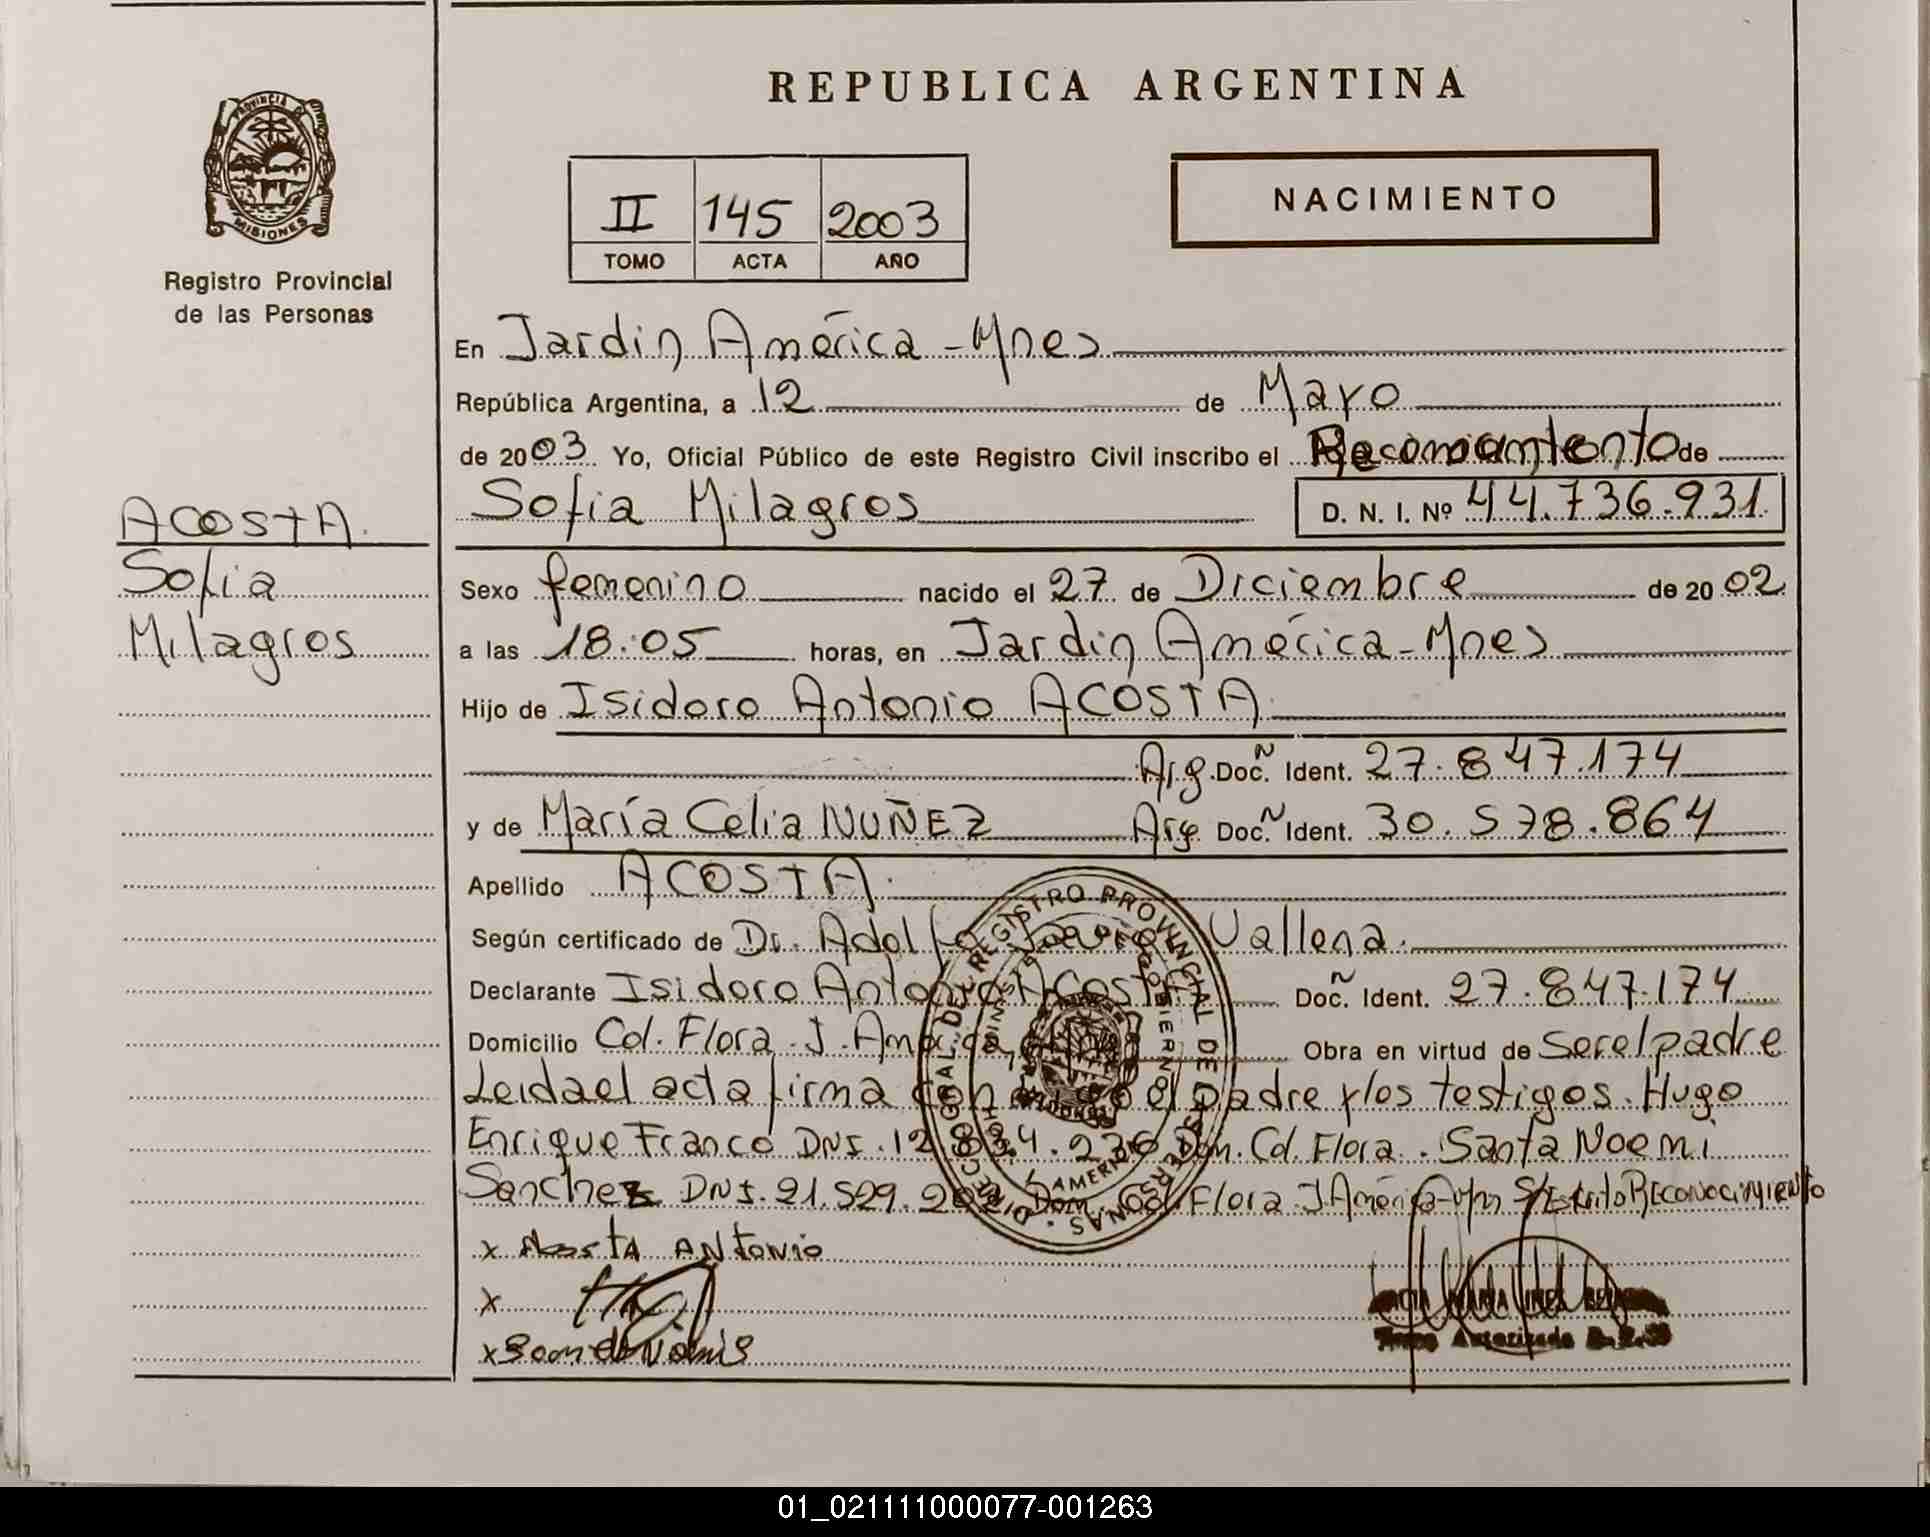 REPUBLICA ARGENTINA
PROVINCIA DE
MISIONES
Registro Provincial
de las Personas
II 145 2003
TOMO ACTA AÑO
NACIMIENTO
ACOSTA.
Sofia
Milagros
En Jardin América-Mnes
República Argentina, a 12 de Mayo
de 2003 Yo, Oficial Público de este Registro Civil inscribo el de
Sofia Milagros D. N. I. Nº 44.736.931.
Sexo femenino nacido el 27 de Diciembre de 2002
a las 18:05 horas, en Jardin América-Mnes
Hijo de Isidoro Antonio ACOSTA.
Arg. Doc. Ident. 27.847.174
y de María Celia NUÑEZ Arg. Doc. Ident. 30.578.864
Apellido ACOSTA.
Según certificado de Dr. Vallena.
Declarante Isidoro Antonio Acosta Doc. Ident. 27.847.174
Domicilio Col. Flora. J. América, Obra en virtud de Ser el padre
Leida el acta firma con el padre y los testigos. Hugo
Enrique Franco DNI. Dom. Col. Flora. Santa Noemi
Sanchez DNI. 21.529. Dom. Col. Flora J. América-Mn S/Escrito RECONOCIMIENTO
x Acosta ANtonio
x
x
DIRECCION GRAL. DEL REGISTRO PROVINCIAL DE LAS PERSONAS
01_021111000077-001263